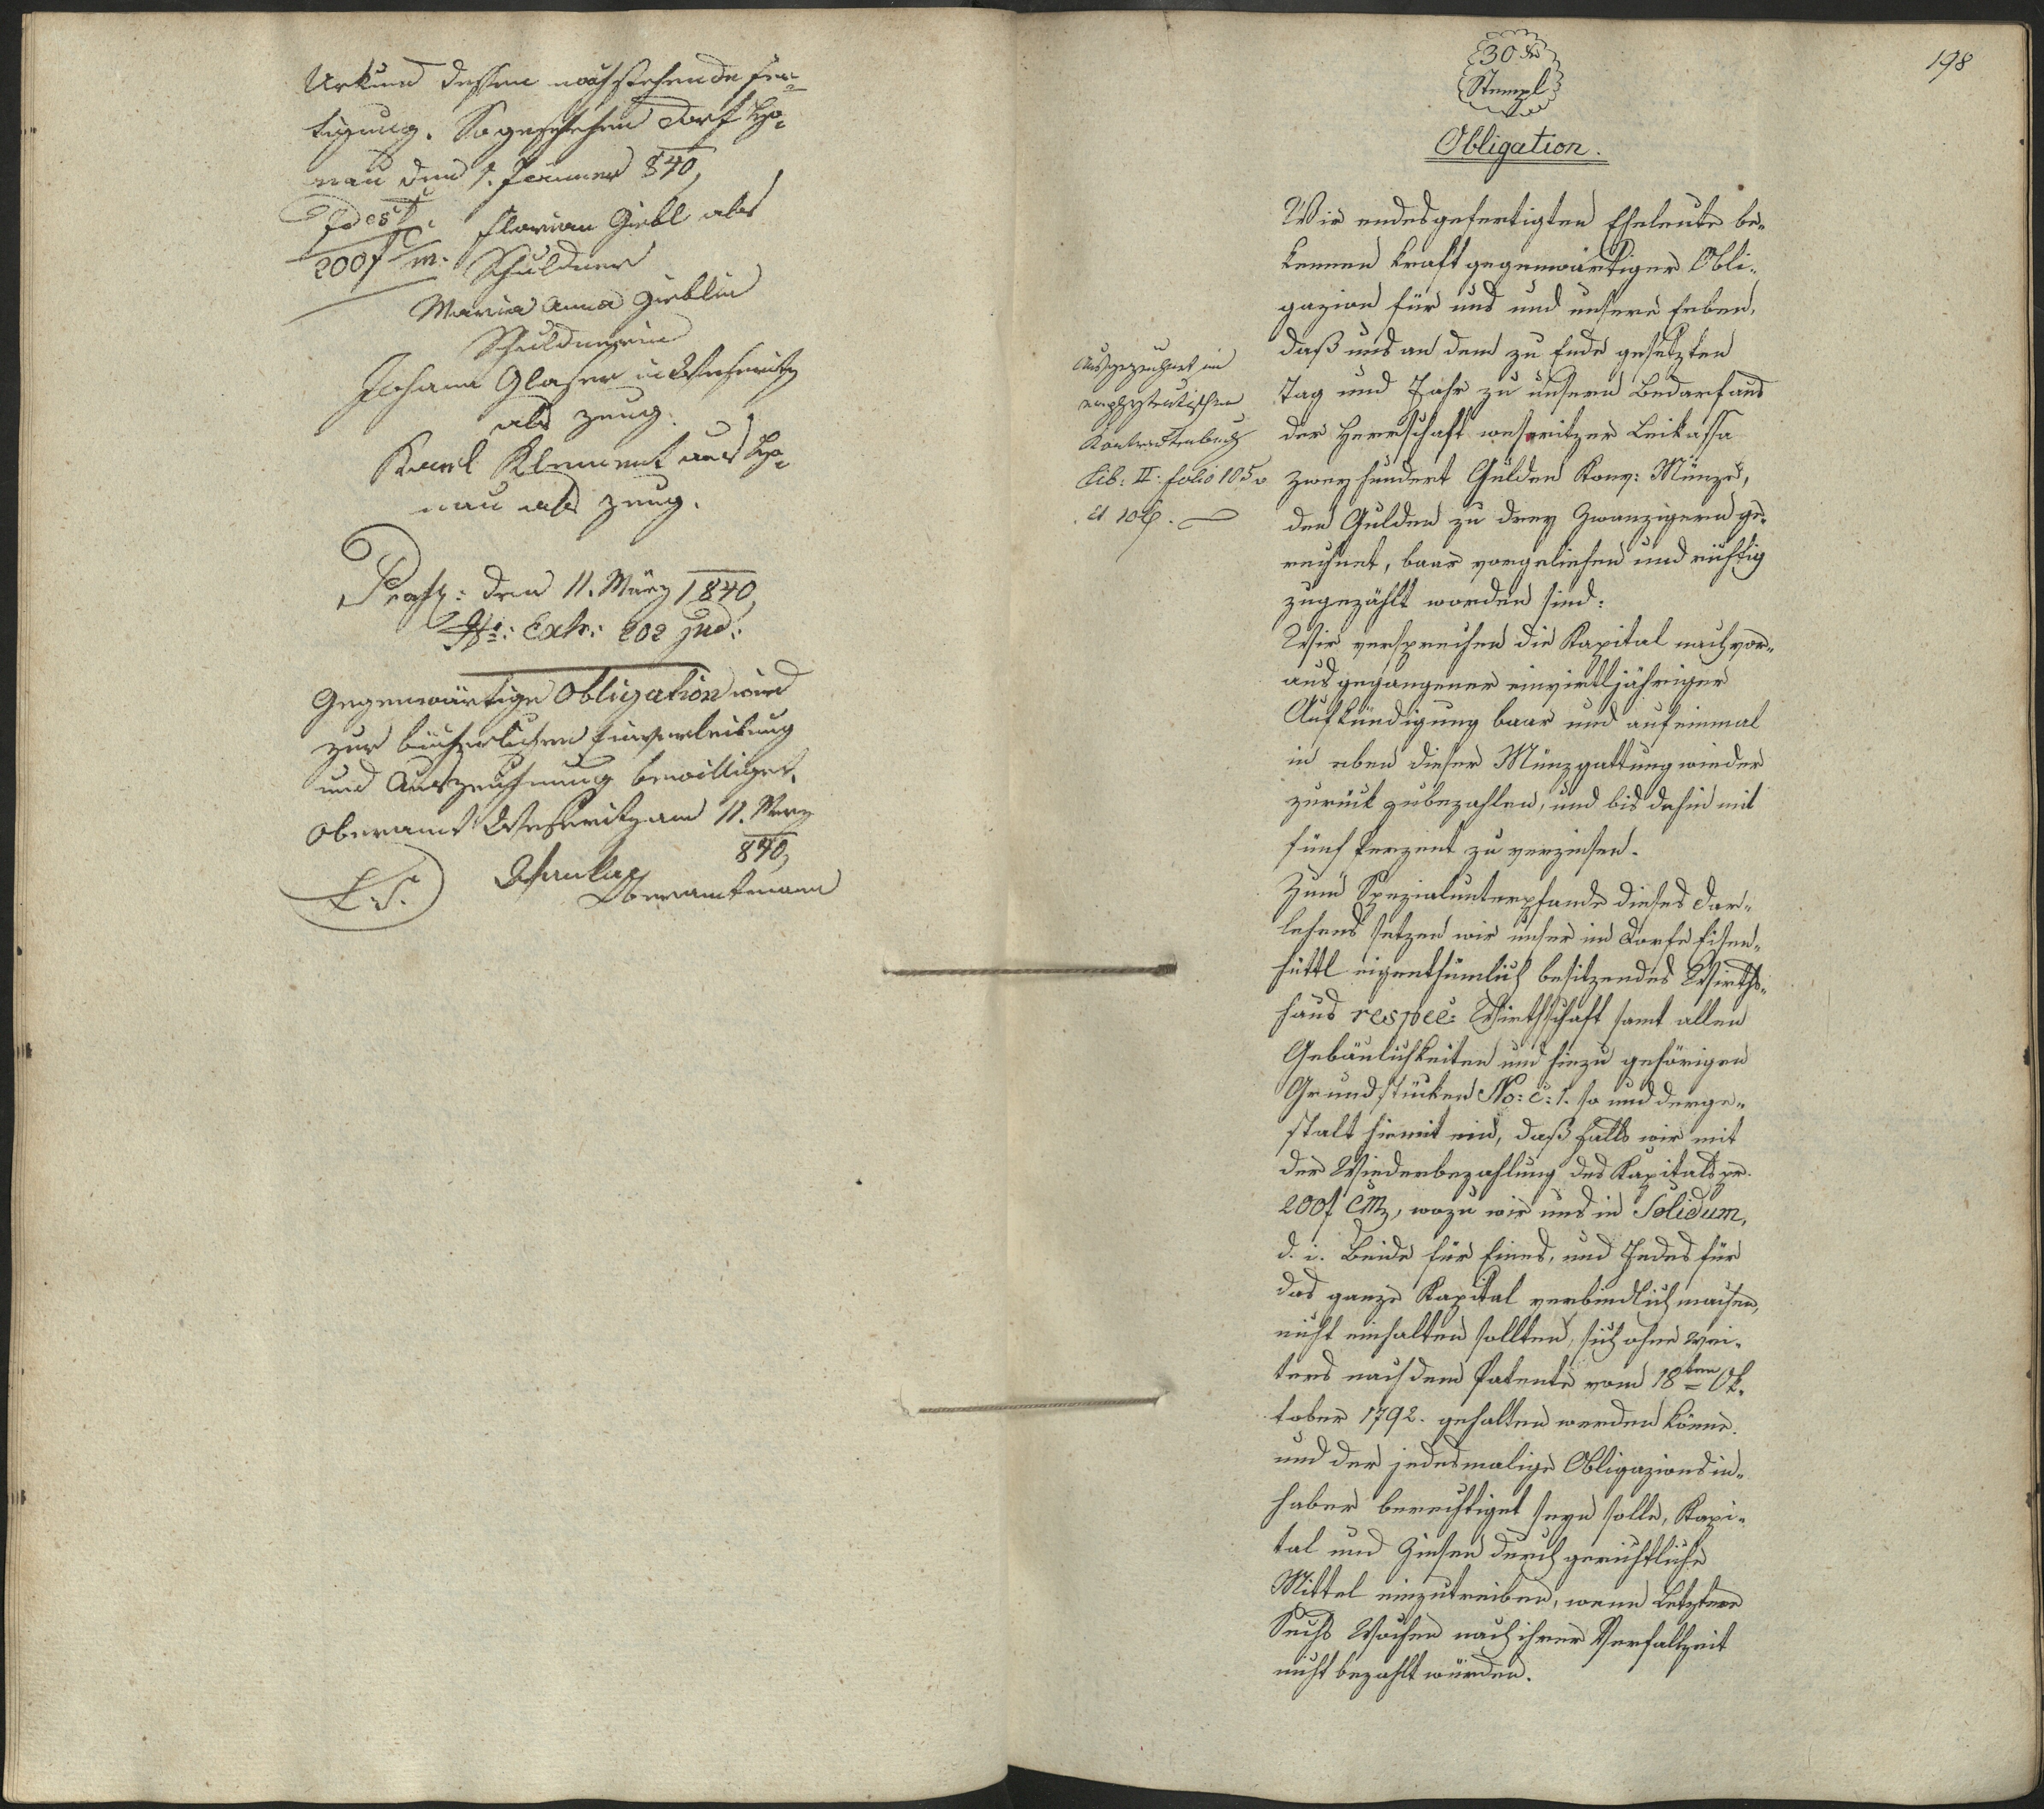 Urkund dessen nachstehende Fer=
tigung. So geschehen Dorf
nau den 1. Jänner 840,
Idest: Florian Giebl als
200f m. Schuldner
Maria Anna Gieblin
Schuldnerin
Johann Glaser in Weseritz
als Zeug.
Karl Klement aus
nau als Zeug.
Praes: den 11. März 1840,
Exh: 202 jud:
Gegenwärtige Obligation wird
zur bücherlichen Einverleibung
und Auszeichnung bewilliget.
Oberamt Weseritz am 11. März
840,
L. S.
Oberamtmann
198
30 Xr
Stempl
Obligation.
Wir endesgefertigten Eheleute be-
kennen kraft gegenwärtiger Obli-
gazion für uns und unsere Erben,
daß uns an dem zu Ende gesetzten
Tag und Jahr zu unsern Bedarf aus
der Herrschaft weseritzer Leikassa
zweyhundert Gulden Konv: Münze,
den Gulden zu drey Zwanzigern ge-
rechnet, baar vorgeliehen und richtig
zugezählt worden sind:
Wir versprechen die Kapital nach vor-
ausgegangener einvirtljähriger
Aufkündigung baar und auf einmal
in eben dieser Münzgattung wieder
zurück zubezahlen, und bis dahin mit
fünf Perzent zu verzinsen.
Zum Spezialunterpfande dieses Dar-
lehens setzen wir unser im Dorfe Eisen-
hüttl eigenthümlich besitzendes Wirths-
haus respec: Wirthschaft samt allen
Gebäulichkeiten und hiezu gehörigen
Grundstücken No: c: 1. so und derge-
stalt hiemit ein, daß falls wir mit
der Wiederbezahlung des Kapitals pr.
200f CMz, wozu wir uns in Solidum,
d. i. Beide für Eines, und Jedes für
das ganze Kapital verbindlich machen,
nicht einhalten sollten, sich ohne wei-
ters nach dem Patente vom 18ten Ok-
tober 1792. gehalten werden könne.
und der jedesmalige Obligazionsin-
haber berechtiget seyn solle, Kapi-
tal und Zinsen durch gerichtliche
Mittel einzutreiben, wenn Letztere
Sechs Wochen nach ihrer Verfallzeit
nicht bezahlt würden.
Ausgezeichnet im
emphyteutischen
Kontraktenbuch
Lib: II: folio 105 v
et 106.